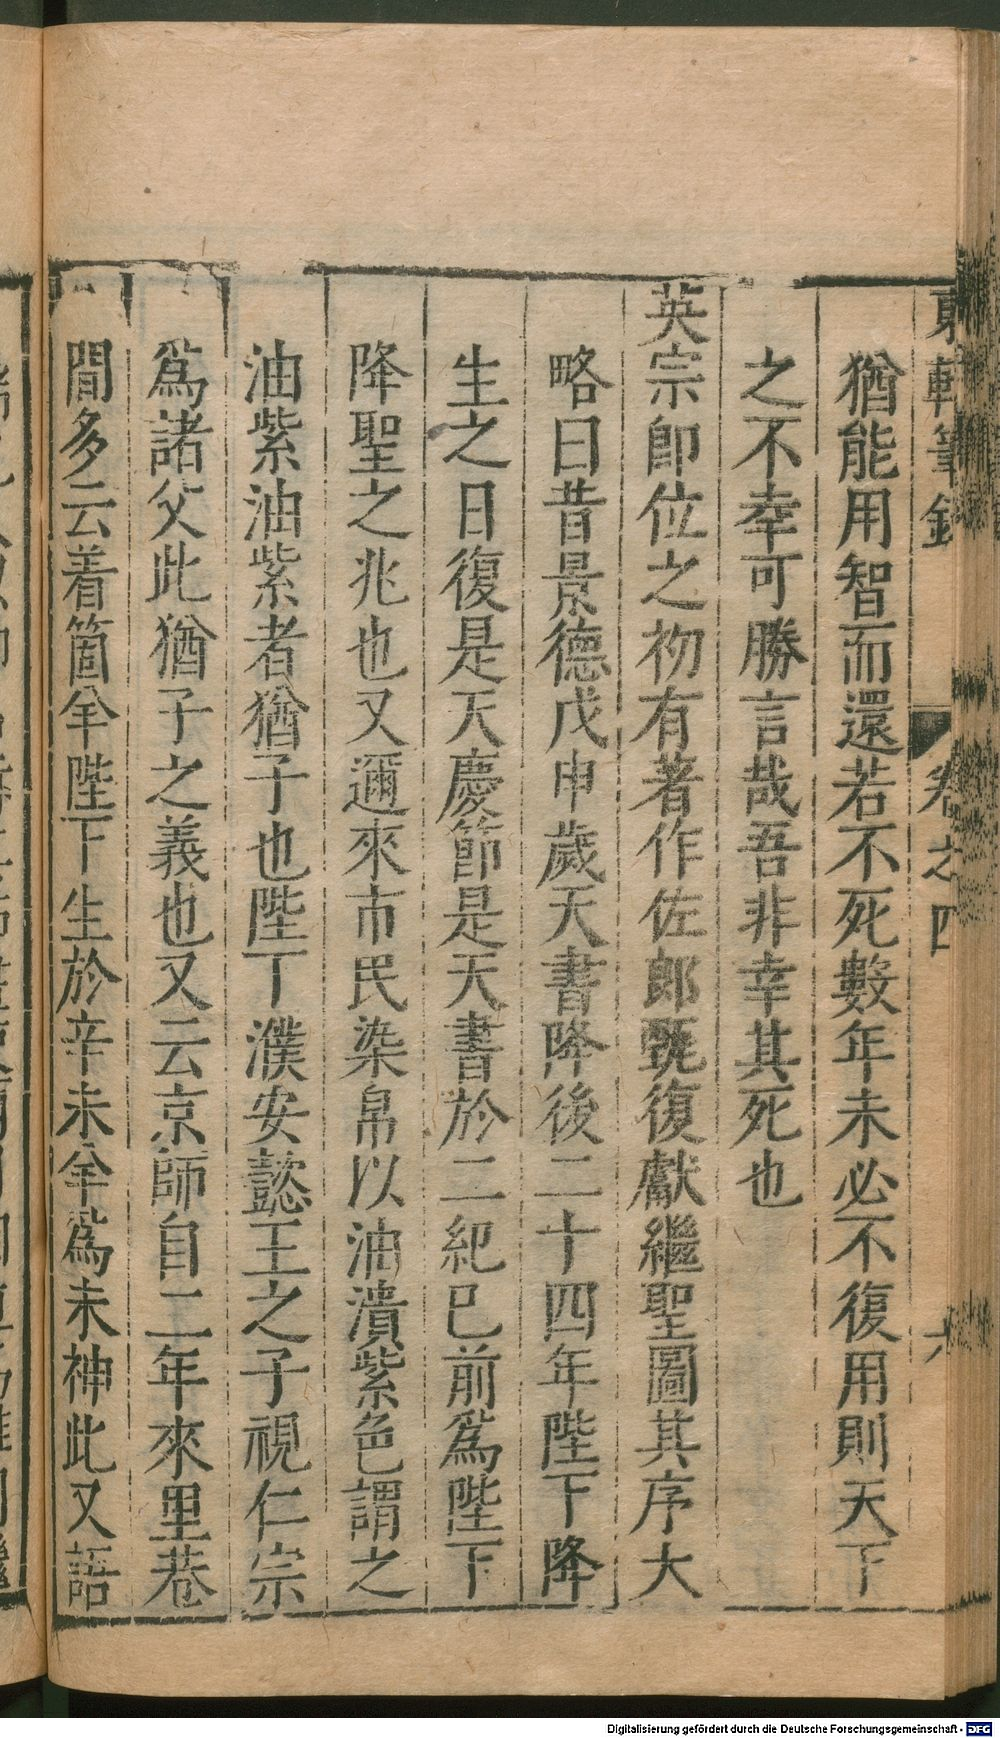 東軒筆錄 卷之四 六
猶能用智而還若不死數年未必不復用則天下
之不幸可勝言哉吾非幸其死也
英宗即位之初有著作佐郎甄復獻繼聖圖其序大
略曰昔景德戊申歲天書降後二十四年陛下降
生之日復是天慶節是天書於二紀已前爲陛下
降聖之兆也又邇來市民染帛以油漬紫色謂之
油紫油紫者猶子也陛下濮安懿王之子視仁宗
爲諸父此猶子之義也又云京師自二年來里巷
間多云着箇羊陛下生於辛未羊爲未神此又語
Digitalisierung gefördert durch die Deutsche Forschungsgemeinschaft - DFG